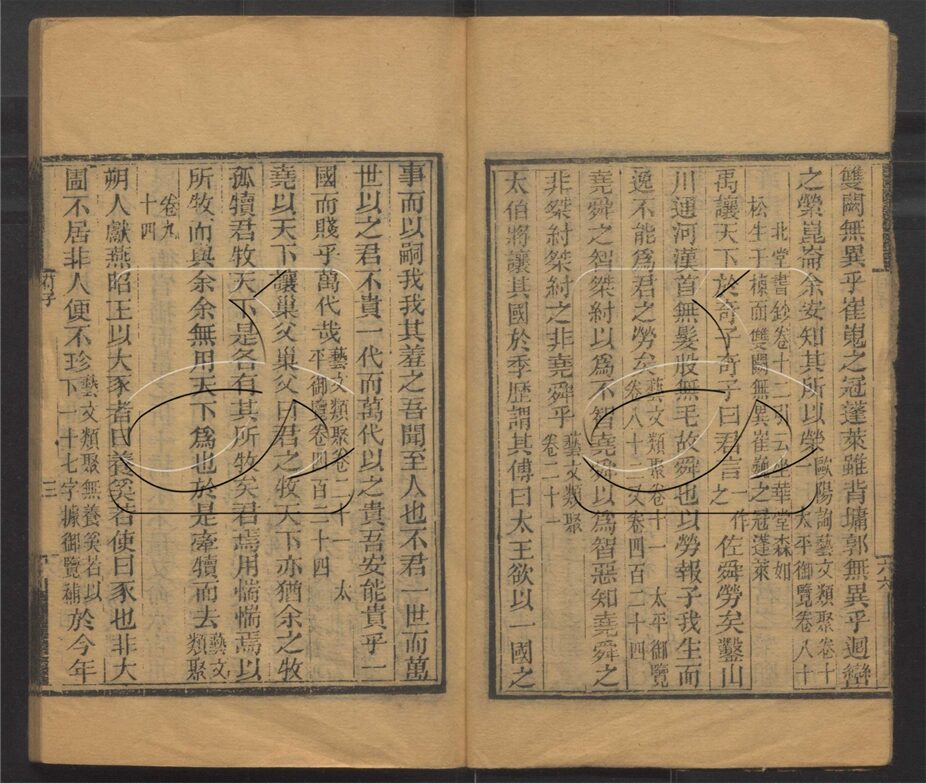 雙闕無異乎崔嵬之冠蓬萊雖背墉郭無異乎迴巒
之縈崑崙余安知其所以榮歐陽詢藝文類聚卷十一 太平御覽卷八十
北堂書鈔卷十二引云坐華堂森如
松生于棟面雙闕無異崔巍之冠蓬萊
禹讓天下於奇子奇子曰君言之一作佐舜勞矣鑿山
川通河漢首無髮股無毛故舜也以勞報子我生而
逸不能爲君之勞矣藝文類聚卷十一 太平御覽卷八十二又卷四百二十四
堯舜之智桀紂以爲不智堯舜以爲智惡知堯舜之
非桀紂桀紂之非堯舜乎藝文類聚卷二十一
太伯將讓其國於季歷謂其傅曰太王欲以一國之
事而以嗣我我其羞之吾聞至人也不君一世而萬
世以之君不貴一代而萬代以之貴吾安能貴乎一
國而賤乎萬代哉藝文類聚卷二十一 太平御覽卷四百二十四
堯以天下讓巢父巢父曰君之牧天下亦猶余之牧
孤犢君牧天下是各有其所牧矣君焉用惴惴焉以
所牧而與余余無用天下爲也於是牽犢而去藝文類聚
卷九十四
朔人獻燕昭王以大豕者曰養奚若使曰豕也非大
圊不居非人便不珍藝文類聚無養奚若以下一十七字據御覽補於今年
符子
三